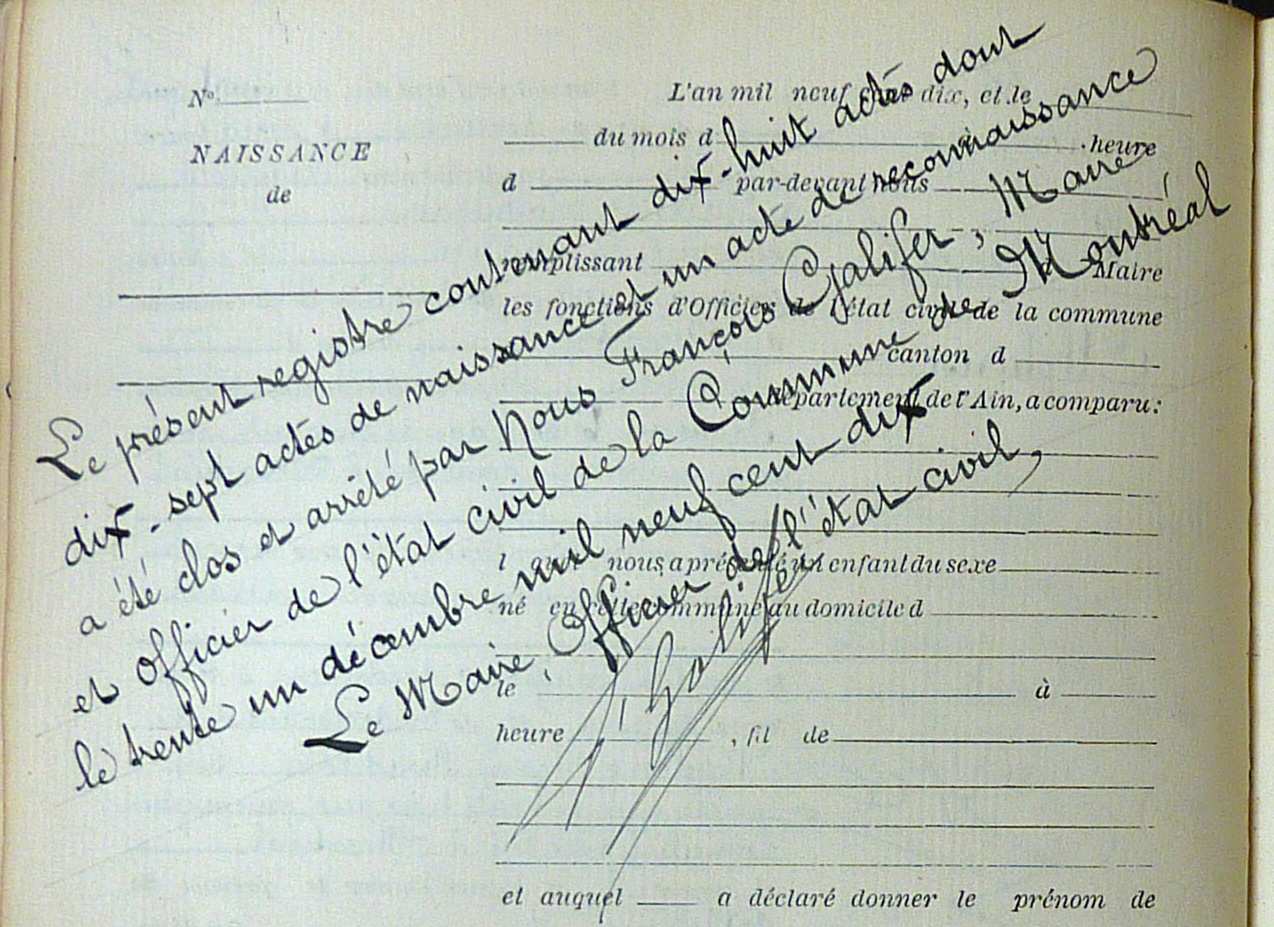 N°
NAISSANCE
de
L'an mil neuf cent dix, et le
du mois d à heure
d par-devant nous
remplissant Maire
les fonctions d'Officier de l'état civil de la commune
canton d
département de l'Ain, a comparu:
l qu nous a présenté un enfant du sexe
né en cette commune au domicile d
le à
heure , fil de
et auquel a déclaré donner le prénom de
Le présent registre contenant dix-huit actes dont
dix-sept actes de naissance et un acte de reconnaissance
a été clos et arrêté par Nous François Galifer, Maire
et Officier de l'état civil de la Commune de Montréal
le trente un décembre mil neuf cent dix
Le Maire, Officier de l'état civil,
Galifer